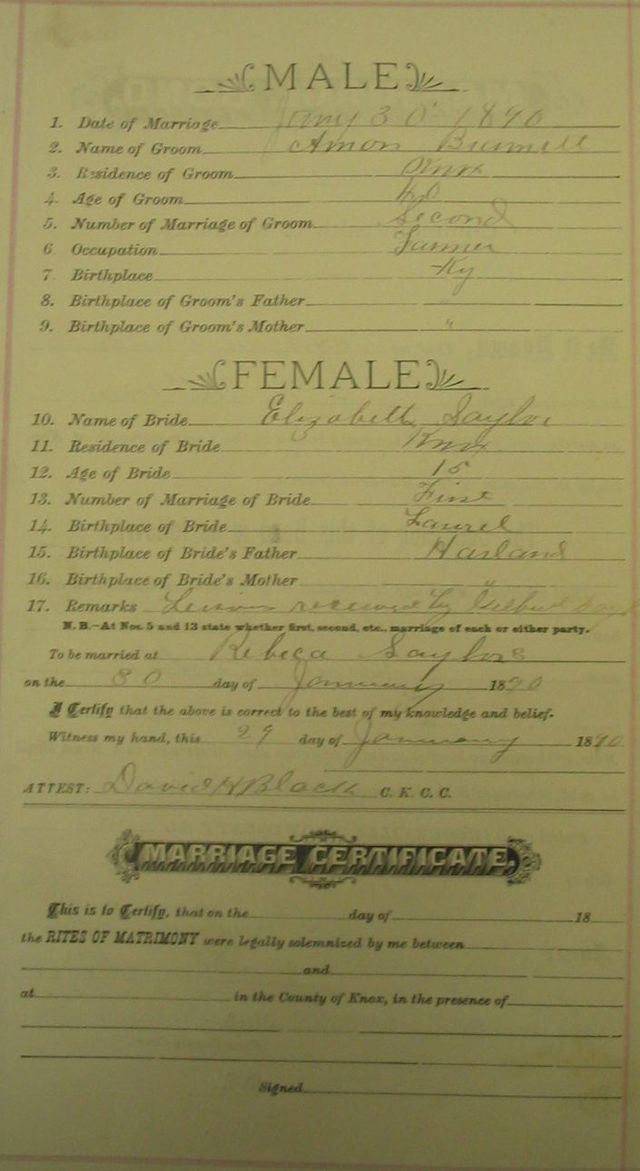 MALE
1. Date of Marriage Jany 30 1890
2. Name of Groom Amon
3. Residence of Groom Knox
4. Age of Groom
5. Number of Marriage of Groom Second
6 Occupation Farmer
7 Birthplace Ky
8. Birthplace of Groom's Father "
9. Birthplace of Groom's Mother "
FEMALE
10. Name of Bride Elizabeth Saylor
11. Residence of Bride Knox
12. Age of Bride 15
13. Number of Marriage of Bride First
14. Birthplace of Bride Laurel
15. Birthplace of Bride's Father Harland
16. Birthplace of Bride's Mother "
17. Remarks received by
N. B.—At Nos. 5 and 13 state whether first, second, etc., marriage of each or either party.
To be married at Rebeca Saylors
on the 30 day of January 1890
I Certify that the above is correct to the best of my knowledge and belief.
Witness my hand, this 29 day of January 1890
ATTEST: David H Black C. K. C. C.
MARRIAGE CERTIFICATE.
This is to Certify, that on the day of 18
the RITES OF MATRIMONY were legally solemnized by me between
and
at in the County of Knox, in the presence of
Signed